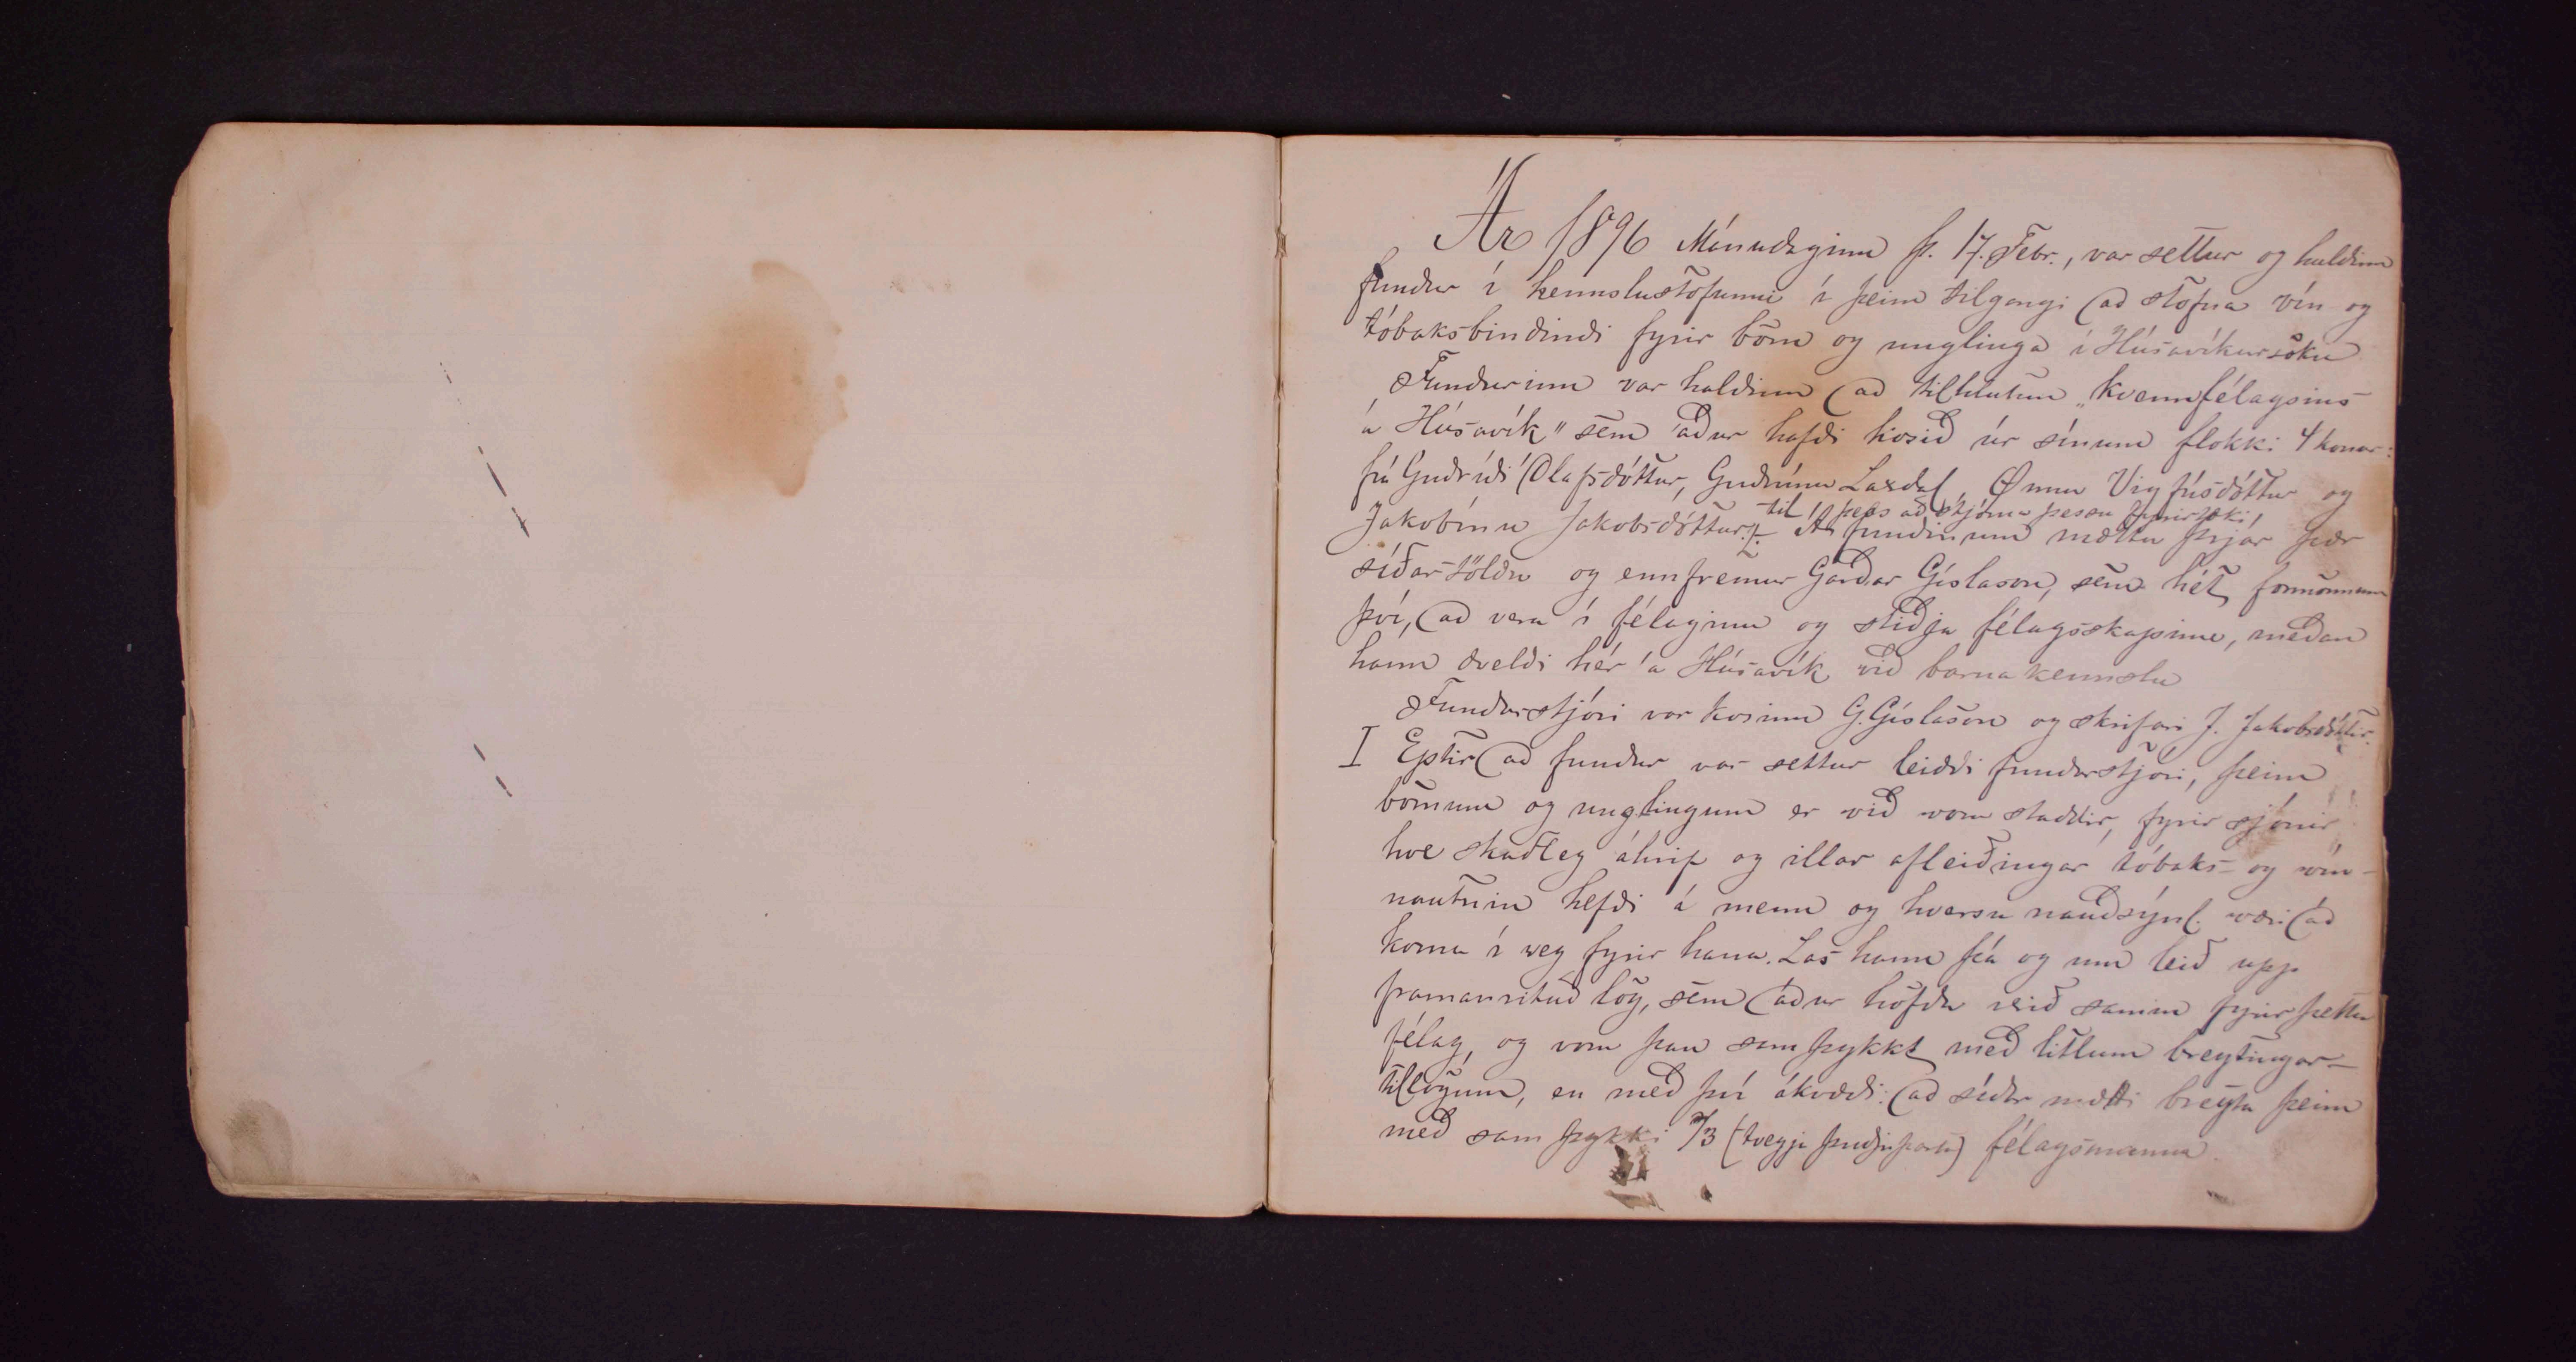 Ár 1896 Mánudaginn þ. 17. Febr., var settur og haldinn
fundur í kennslustofunni í þeim tilgangi að stofna vín og
tóbaksbindindi fyrir börn og unglinga í Húsavíkursókn
Fundurinn var haldinn að tilhlutun „Kvennfélagsins
á Húsavík" sem áður hafði kosið úr sínum flokki 4 konur:
frú Guðríði Ólafsdóttur, Guðrúnu Laxdal, Önnu Vigfúsdóttur og
til þess að stjórna þessu fyrirtæki,
Jakobínu Jakobsdóttur. Á fundinum mættu þrjár þær
síðartöldu og ennfremur Garðar Gíslason, sem hét konunum
því, að vera í félaginu og stiðja félagsskapinn, meðan
hann dveldi hér á Húsavík við barnakennslu
Fundarstjóri var kosinn G. Gíslason og skrifari J. Jakobsdóttir.
I Eptir að fundur var settur leiddi fundarstjóri, þeim
börnum og unglingum er við voru staddir, fyrir sjónir
hve skaðleg áhrif og illar afleiðingar tóbaks- og vín-
nautnin hefði á menn og hversu nauðsýnl. væri að
koma í veg fyrir hana. Las hann þá og um leið upp
framanrituð lög, sem áður höfðu verið samin fyrir þetta
félag, og voru þau samþykkt með litlum breytingar-
tillögum, en með því ákvæði: að síðar mætti breyta þeim
með samþykki 2/3 (tveggja þriðjuparta) félagsmanna